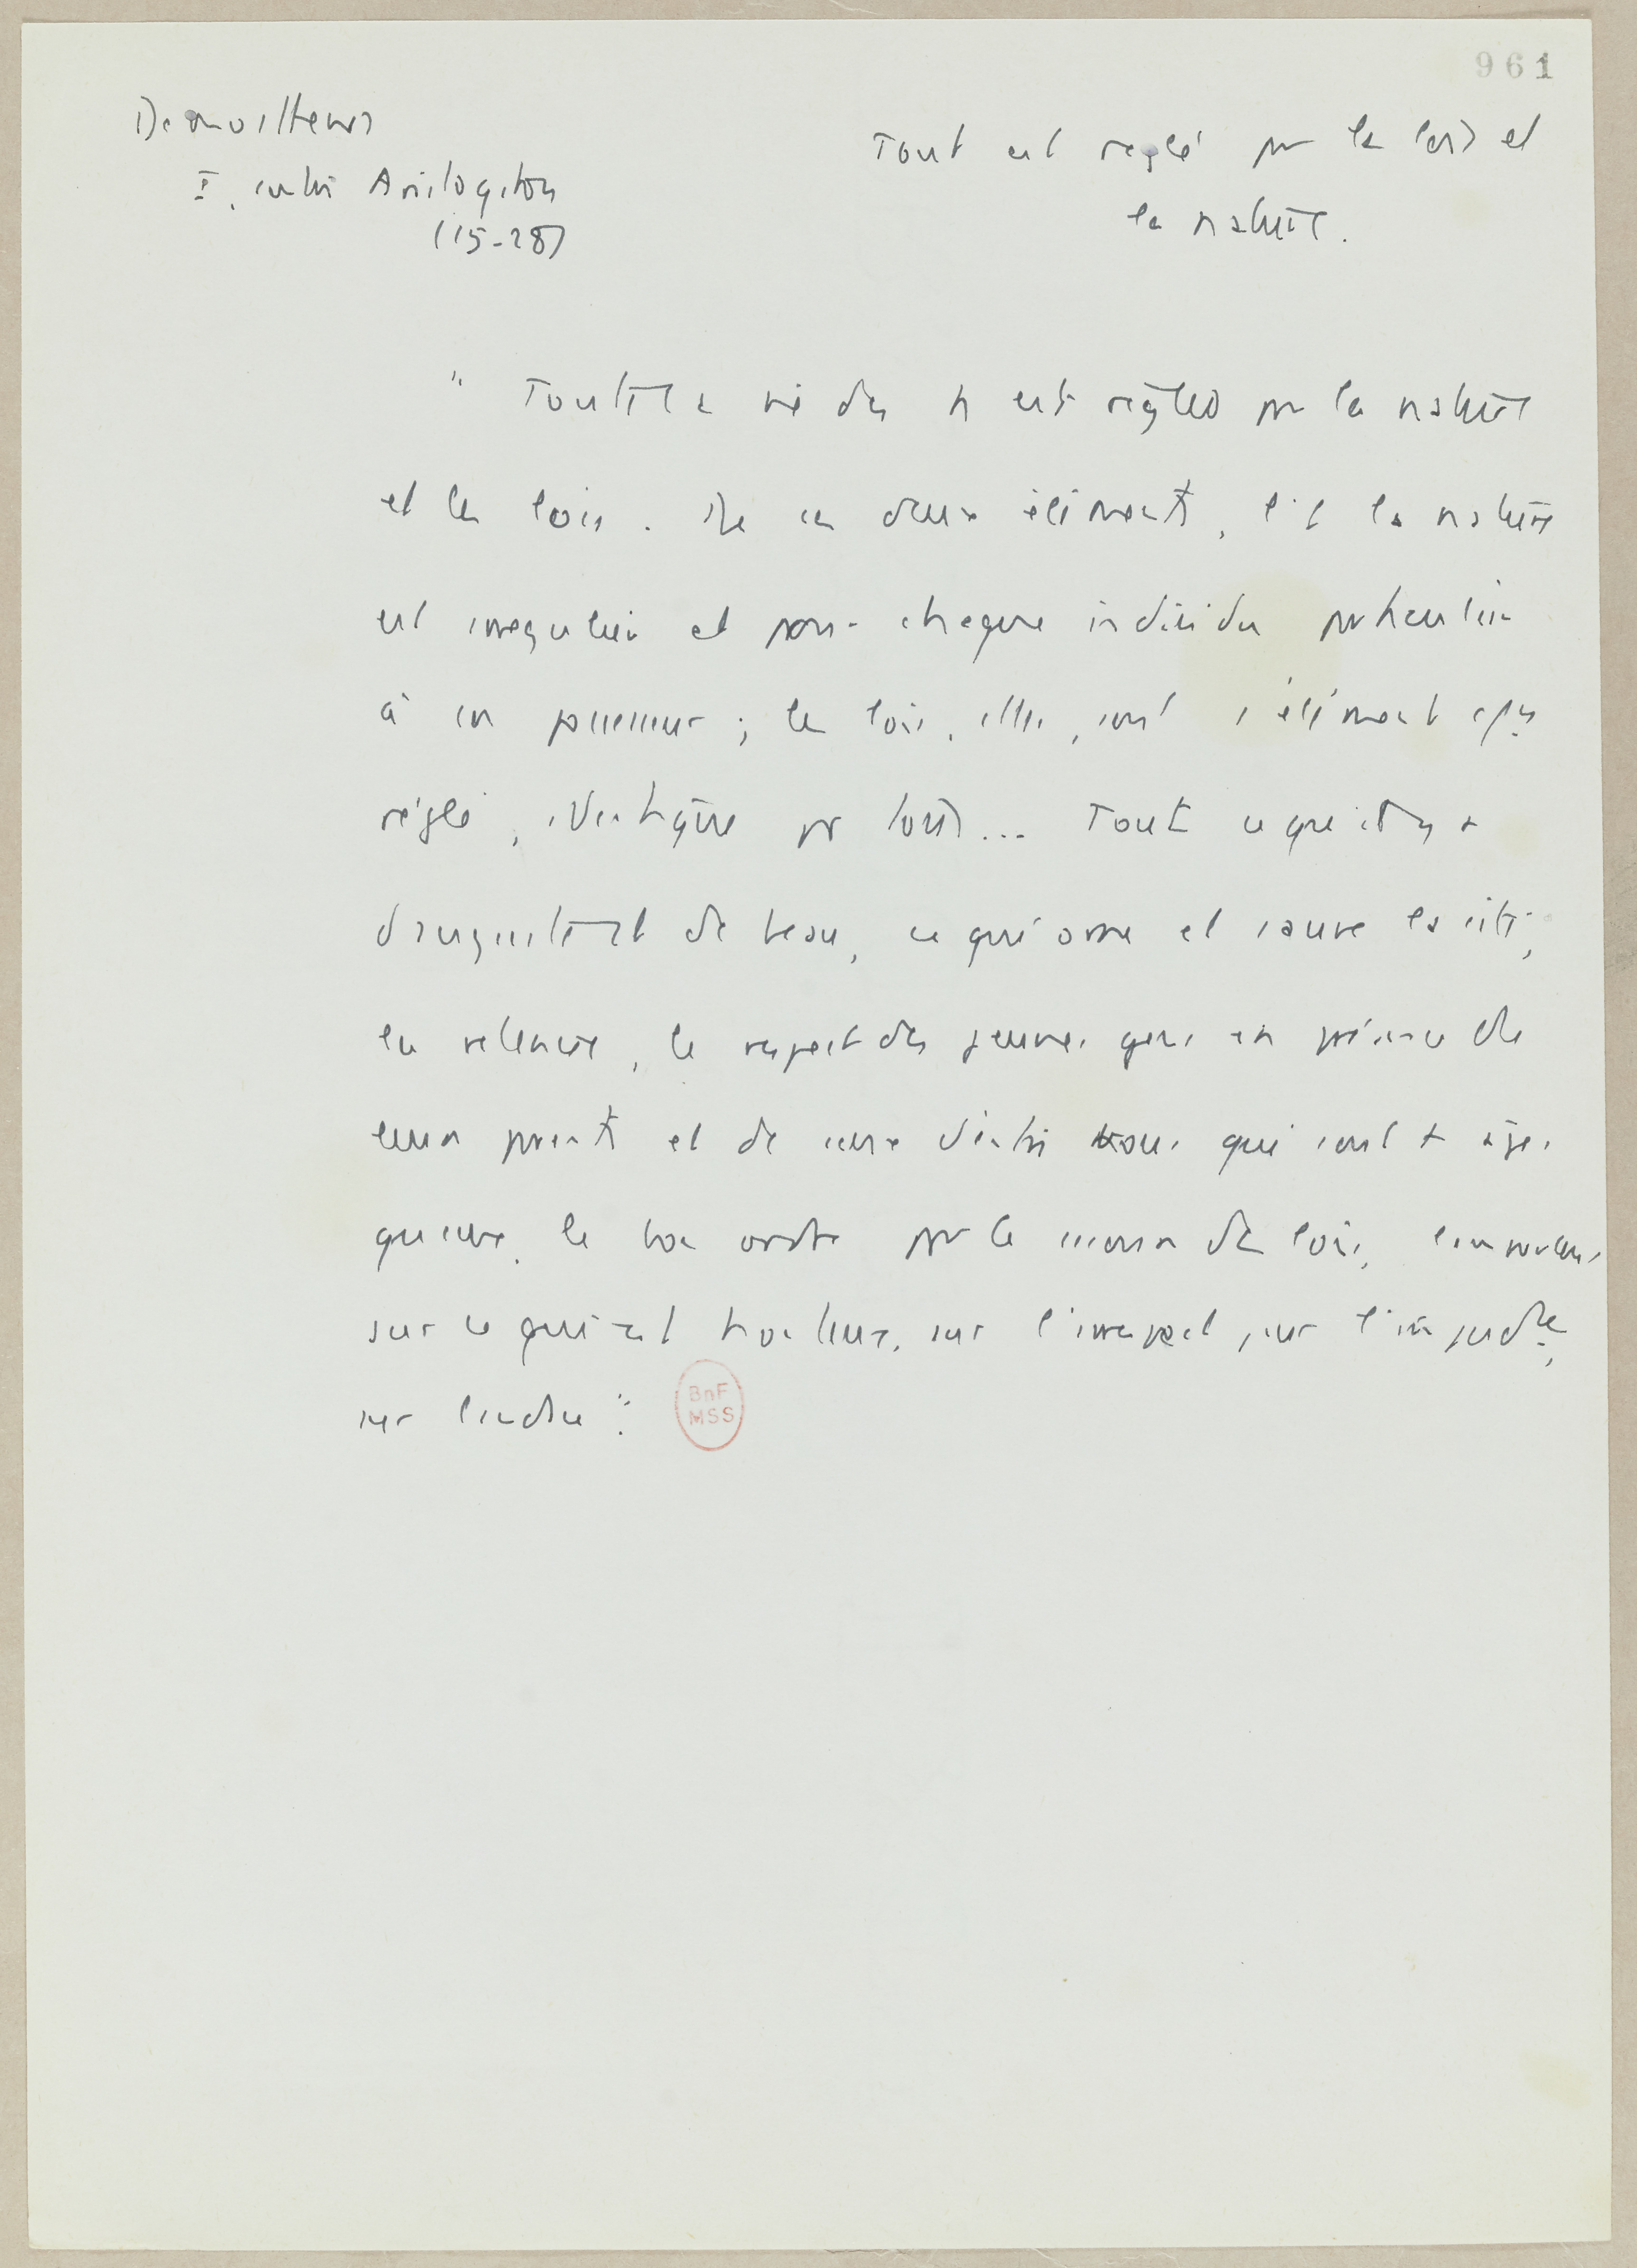 961
Demosthenes
I. contre Aristogiton
(15-28)
Tout est reglé par les lois et
la nature.
" Toute la vie des h est réglée par la nature
et les lois. De ces deux éléments, l'1 la nature
est irregulier et pour chaque individu particulier
à son possesseur ; les lois, elles, sont 1 élément
réglé, identique pr tous... Tout ce qu'il y a
d'auguste et de beau, ce qui orne et sauve la cité,
la retenue, le respect des jeunes gens en présence de
leurs parents et de ceux d'entre nous qui sont + agés
qu'eux, le bon ordre par le secours des lois,
sur ce qui est honteux, sur l'irrespect, sur l'impudence,
sur l'audace".
BnF
MSS